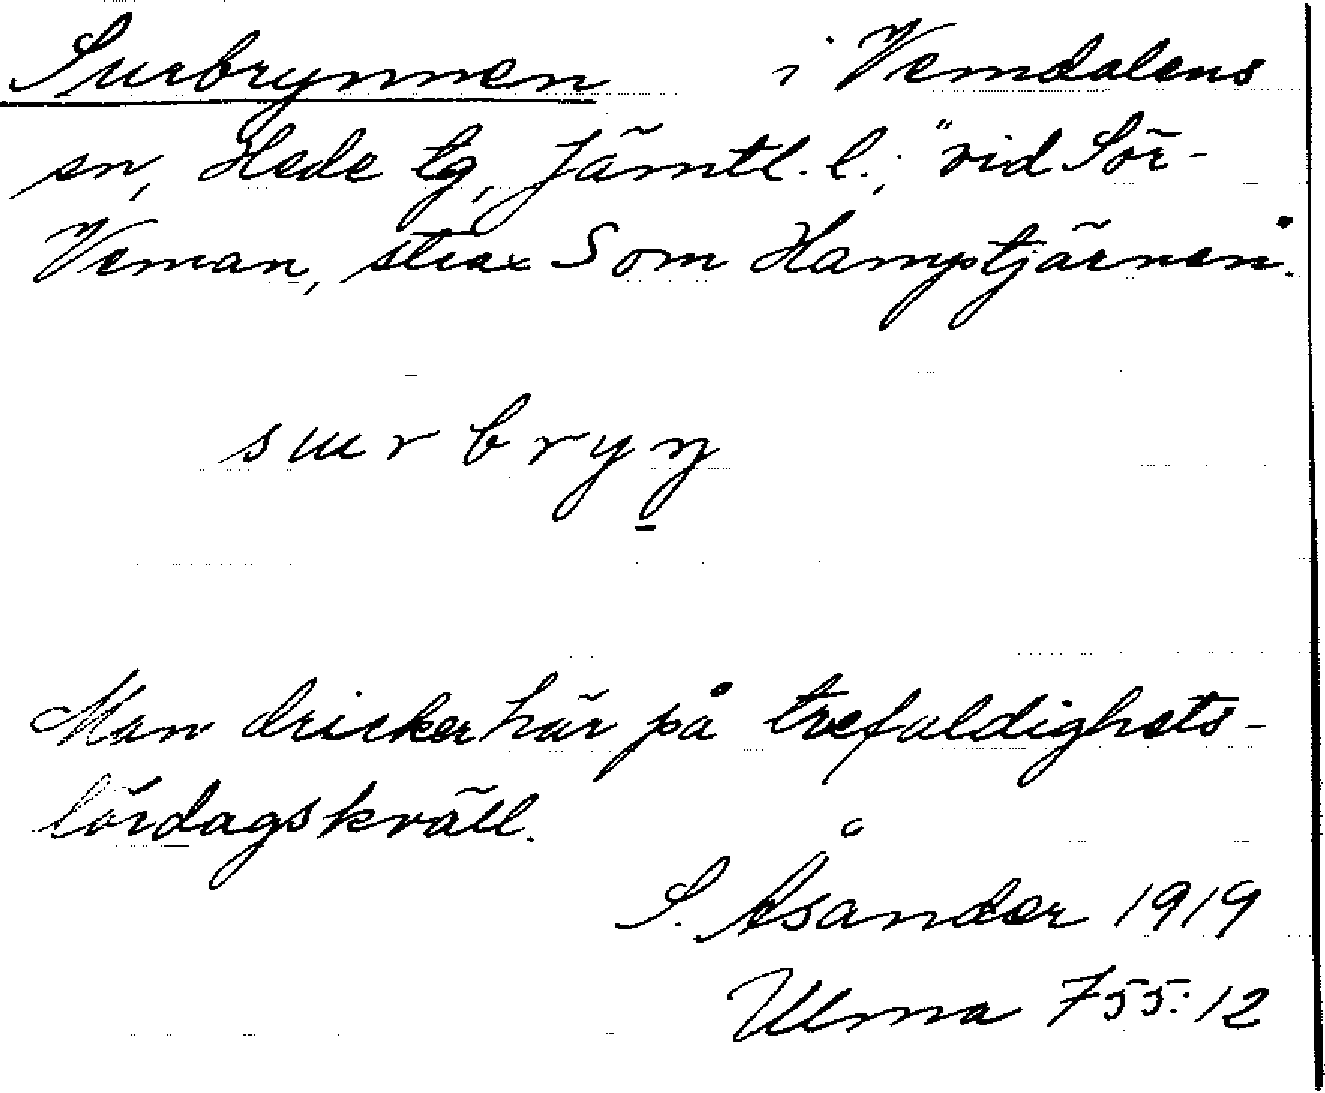 Surbrynnen i Vemdalens
sn, Hede tg, Jämtl. l.; "vid Sör-
Veman, strax S om Hamptjärnen".
surbryŋ
Man dricker här på trefaldighets-
lördagskväll.
S. Åsander 1919
Ulma 755:12